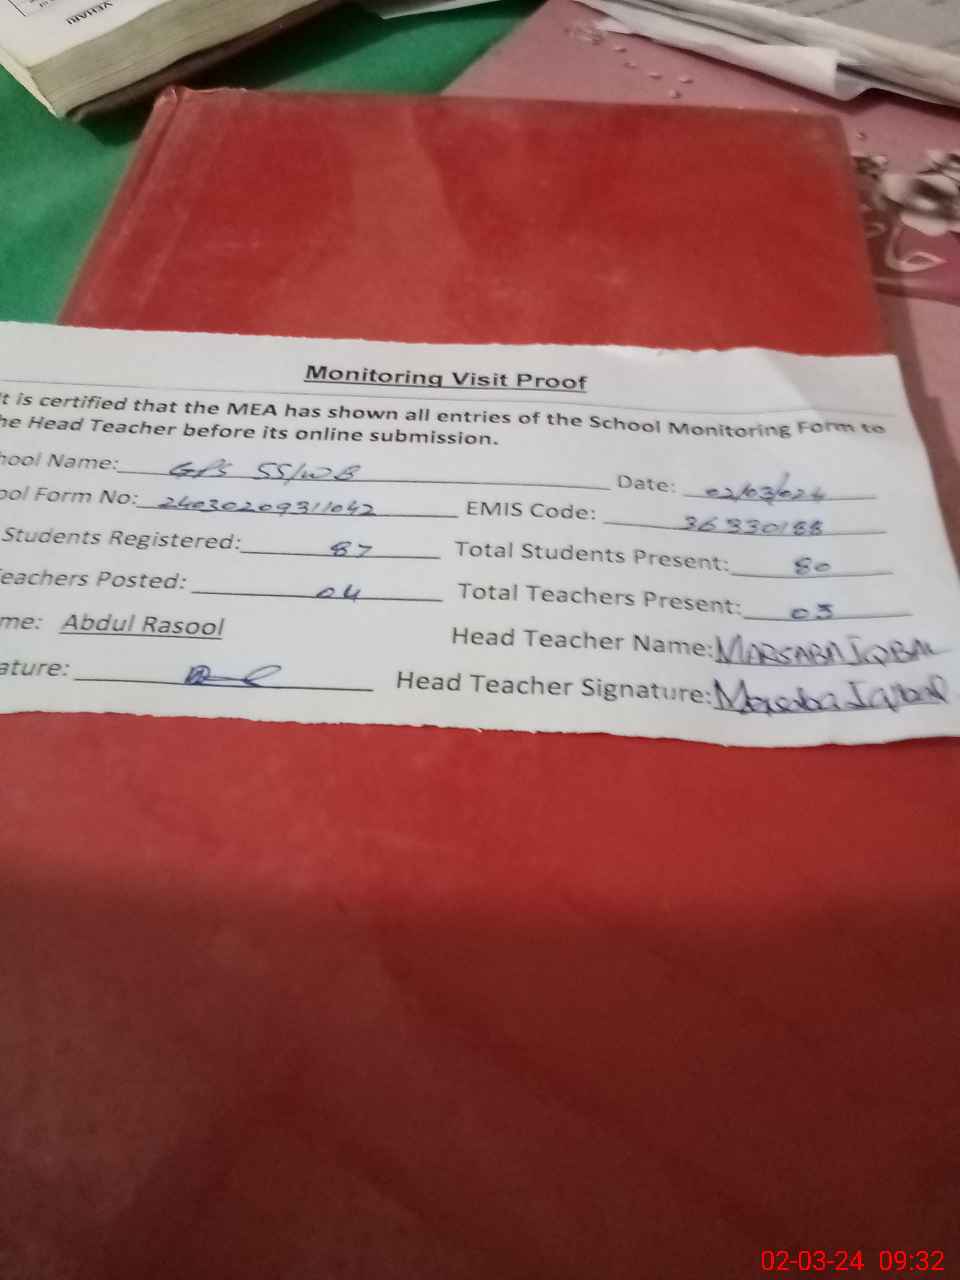 VEHARI
Monitoring Visit Proof
It is certified that the MEA has shown all entries of the School Monitoring Form to
he Head Teacher before its online submission.
hool Name: GPS 55/WB Date: 02/03/024
ool Form No: 24030209311042 EMIS Code: 36330188
Students Registered: 87 Total Students Present: 80
Teachers Posted: 04 Total Teachers Present: 03
me: Abdul Rasool Head Teacher Name: MARSABA IQBAL
ature: Head Teacher Signature: Marsaba Iqbal
02-03-24 09:32